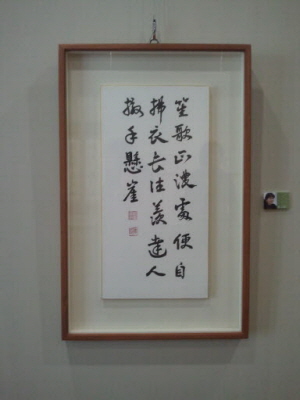 笙歌正濃處便自
拂衣長往羨達人
撒手懸崖